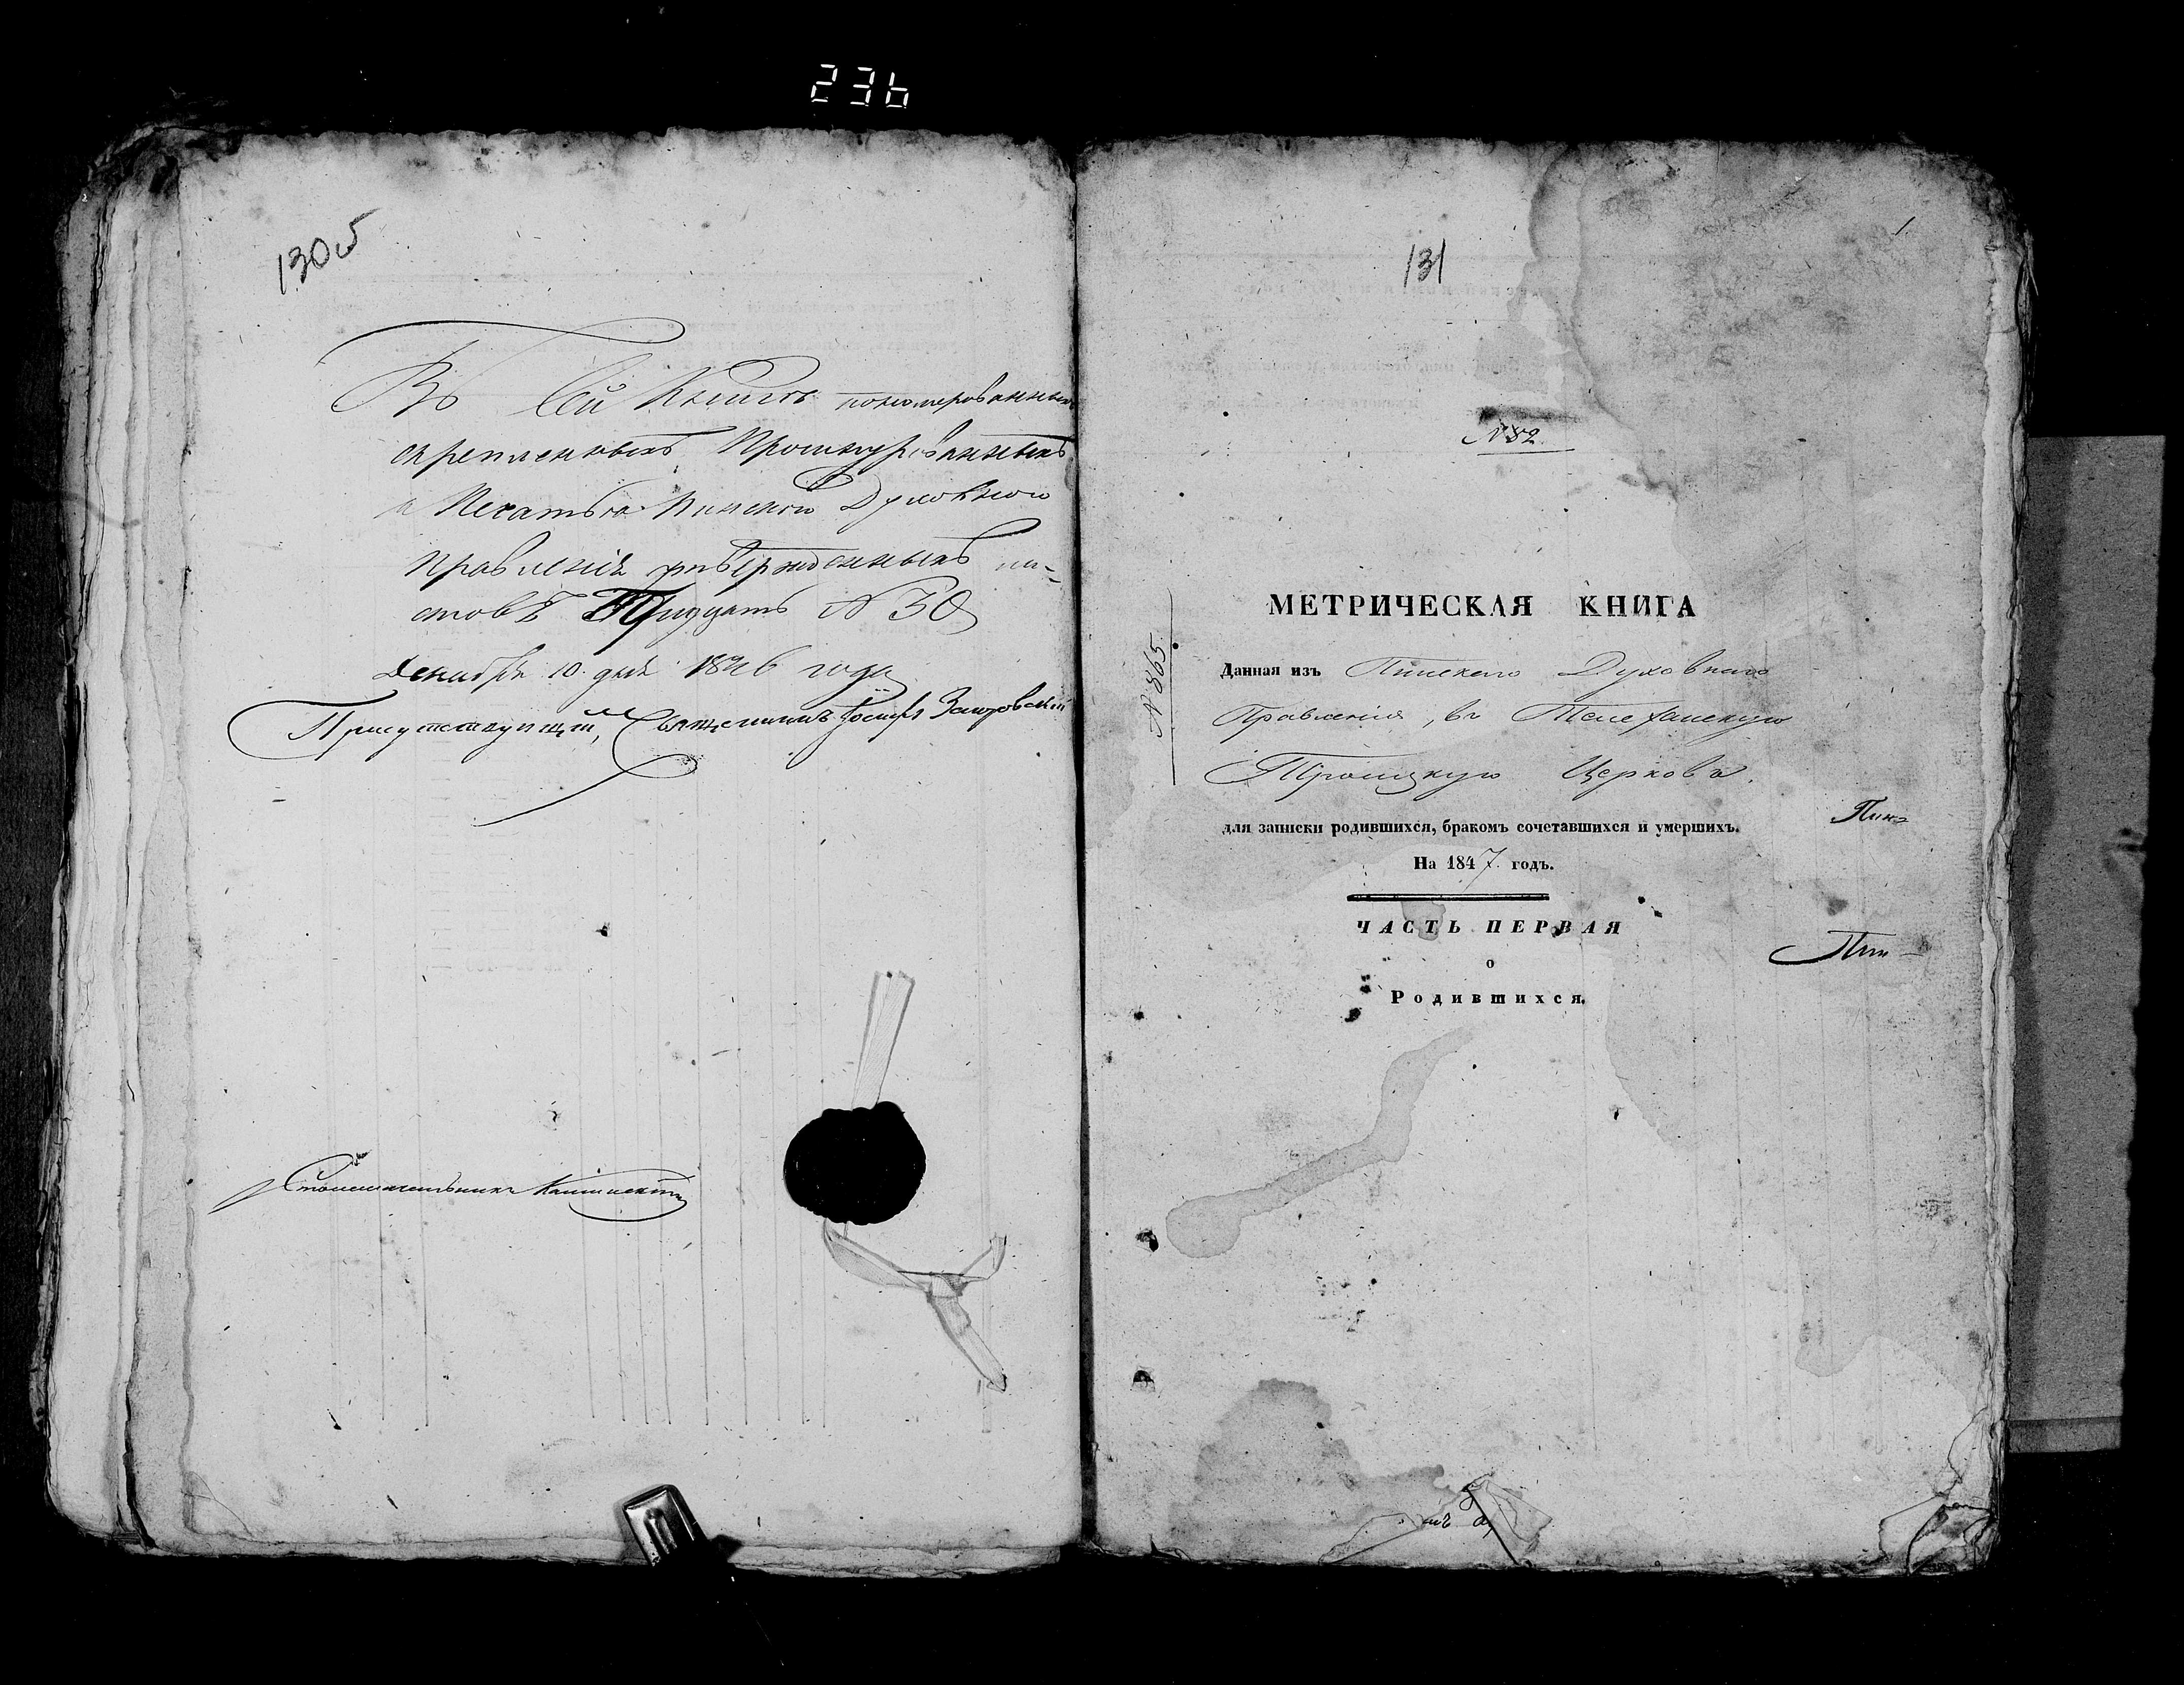 236
130об
Въ Сей Книгѣ пономерованныхъ
скрепленныхъ Прошнурованныхъ
и Печатью Пинского Духовного
Правленія утвержденныхъ ли-
стовъ Тридцать N 30
Декабря 10 дня 1846 года
Присутствующій, Священникъ Іосифъ
Столоначальникъ
131
1
N 82
N 865
МЕТРИЧЕСКАЯ КНИГА
Данная изъ Пинскаго Духовнаго
Правленія, въ Телеханскую
Троицкую Церковь.
для записки родившихся, бракомъ сочетавшихся и умершихъ.
Пин-
На 1847 годъ.
ЧАСТЬ ПЕРВАЯ
Пин-
о
Родившихся.